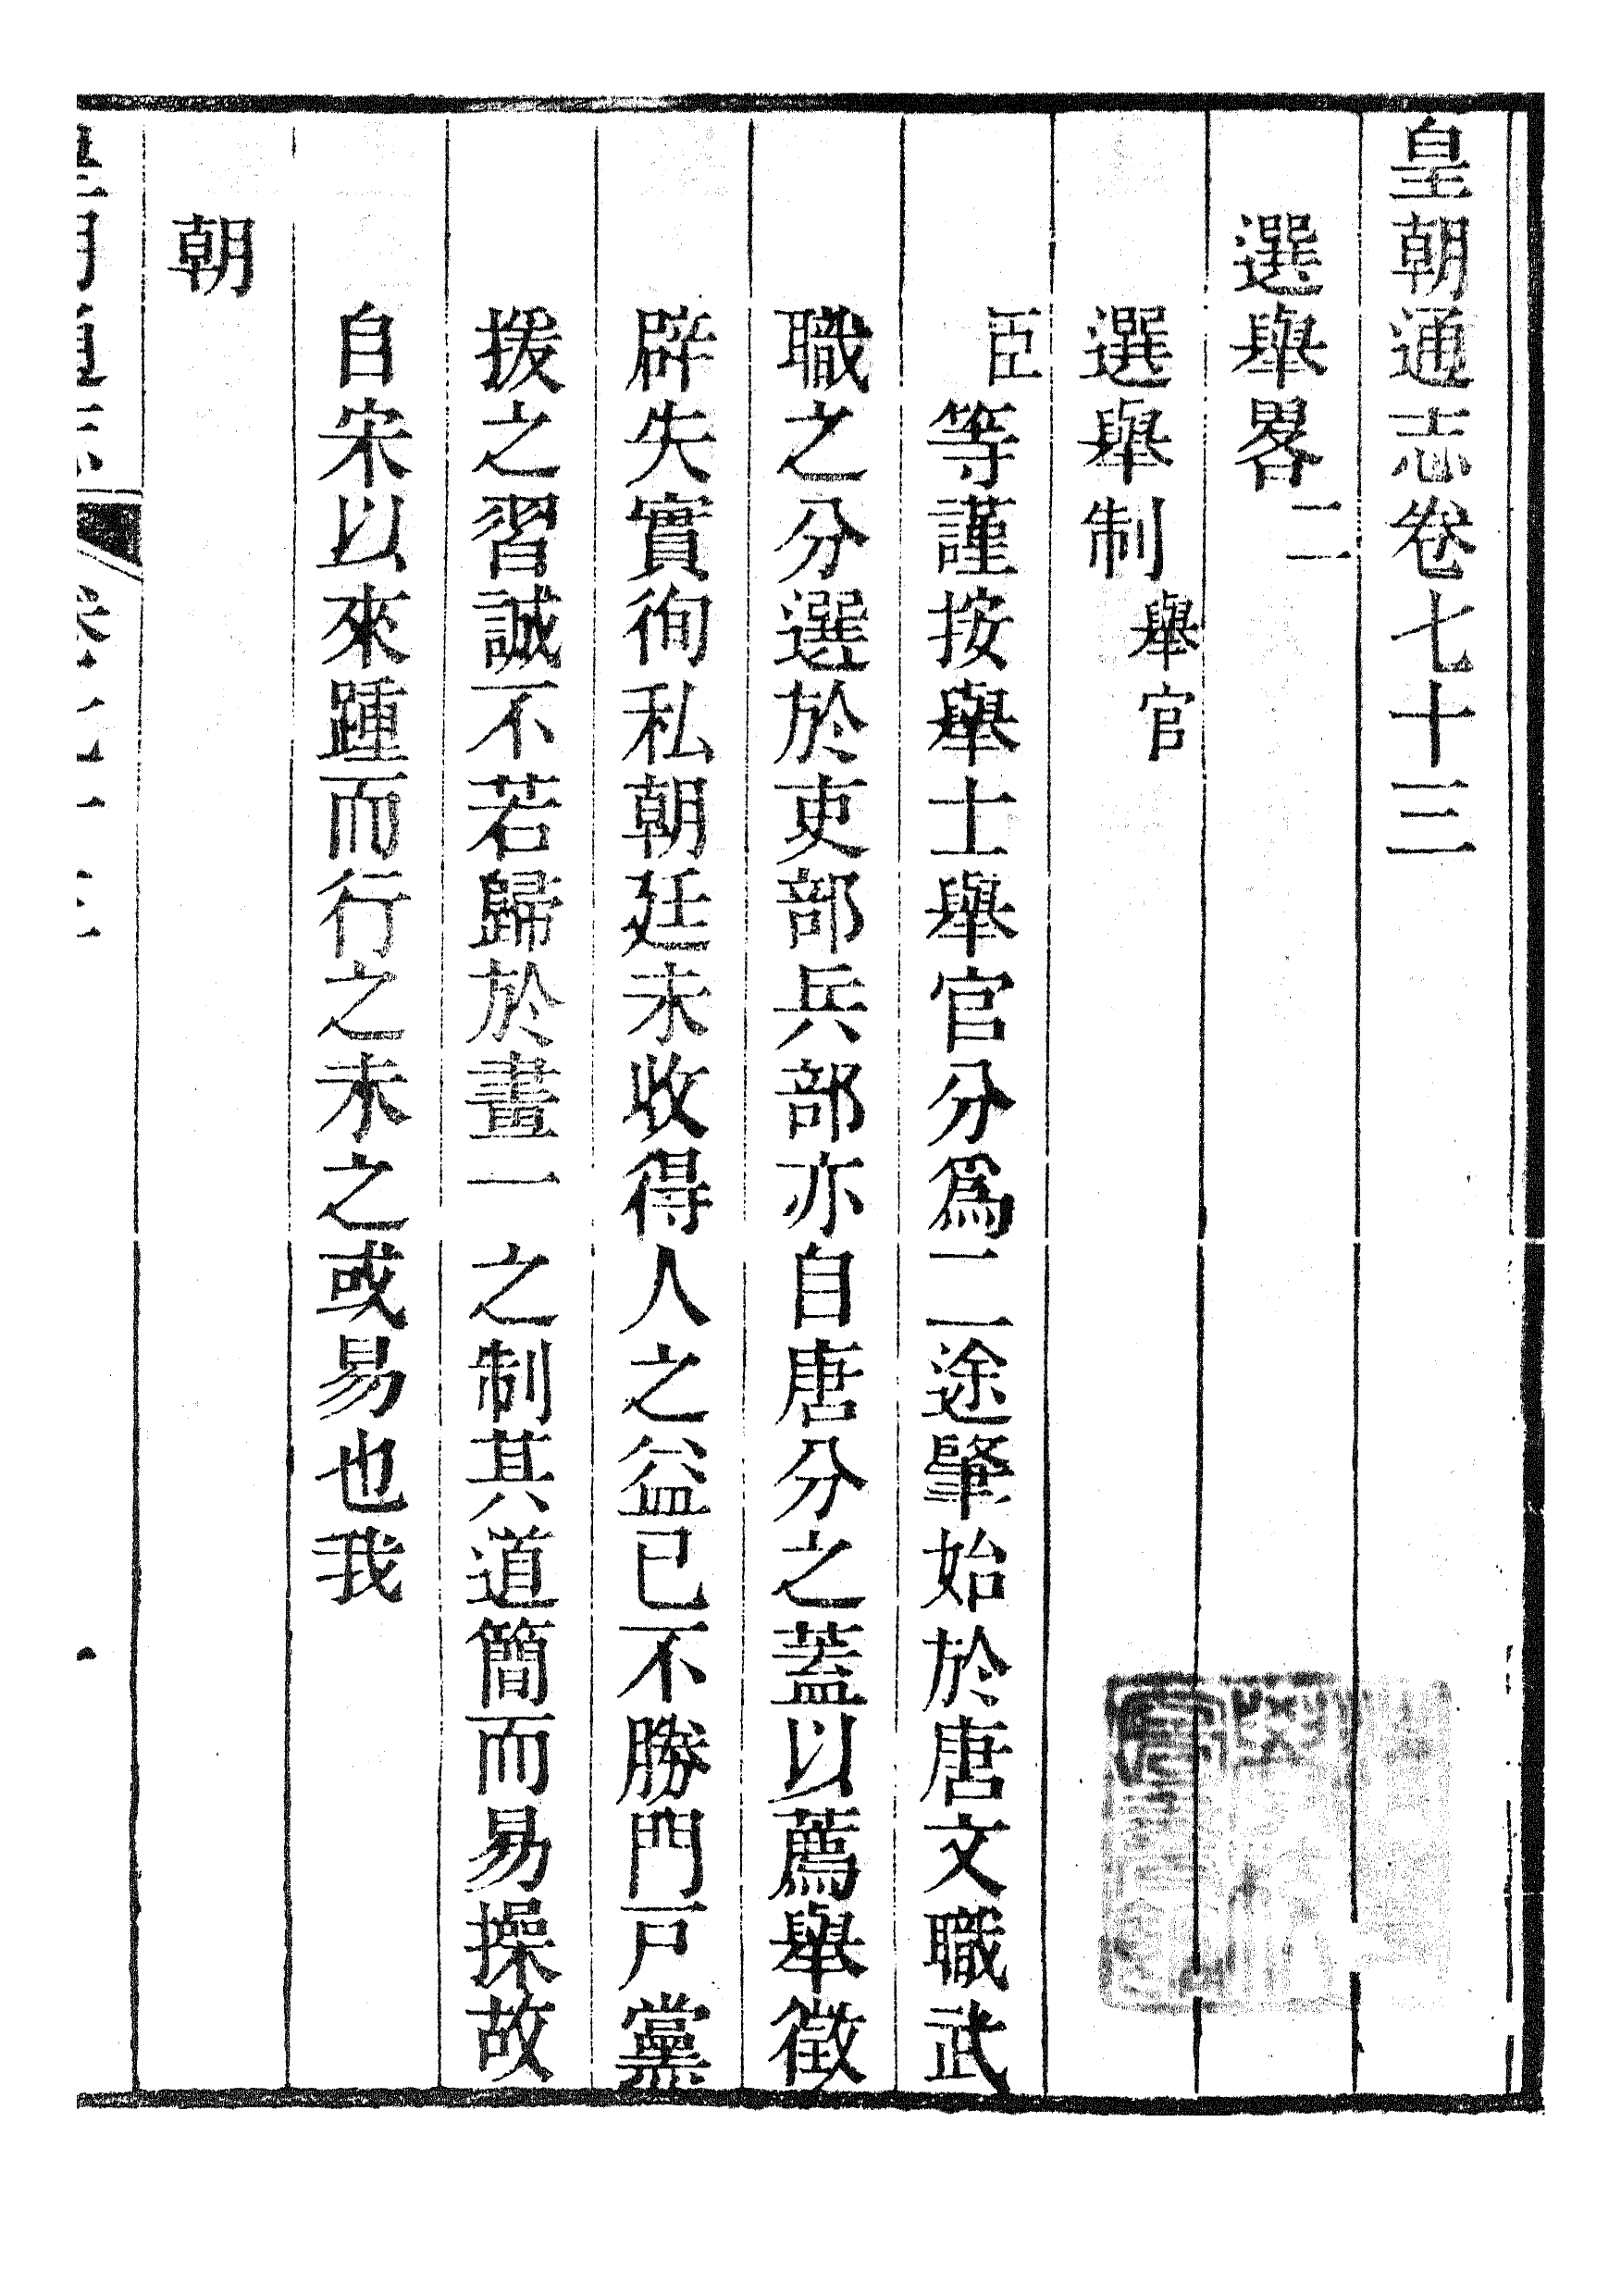 皇朝通志卷七十三
選舉畧二
選舉制舉官
臣等謹按舉士舉官分爲二途肇始於唐文職武
職之分選於吏部兵部亦自唐分之蓋以薦舉徵
辟失實徇私朝廷未收得人之益已不勝門戸黨
援之習誠不若歸於畫一之制其道簡而易操故
自宋以來踵而行之未之或易也我
朝